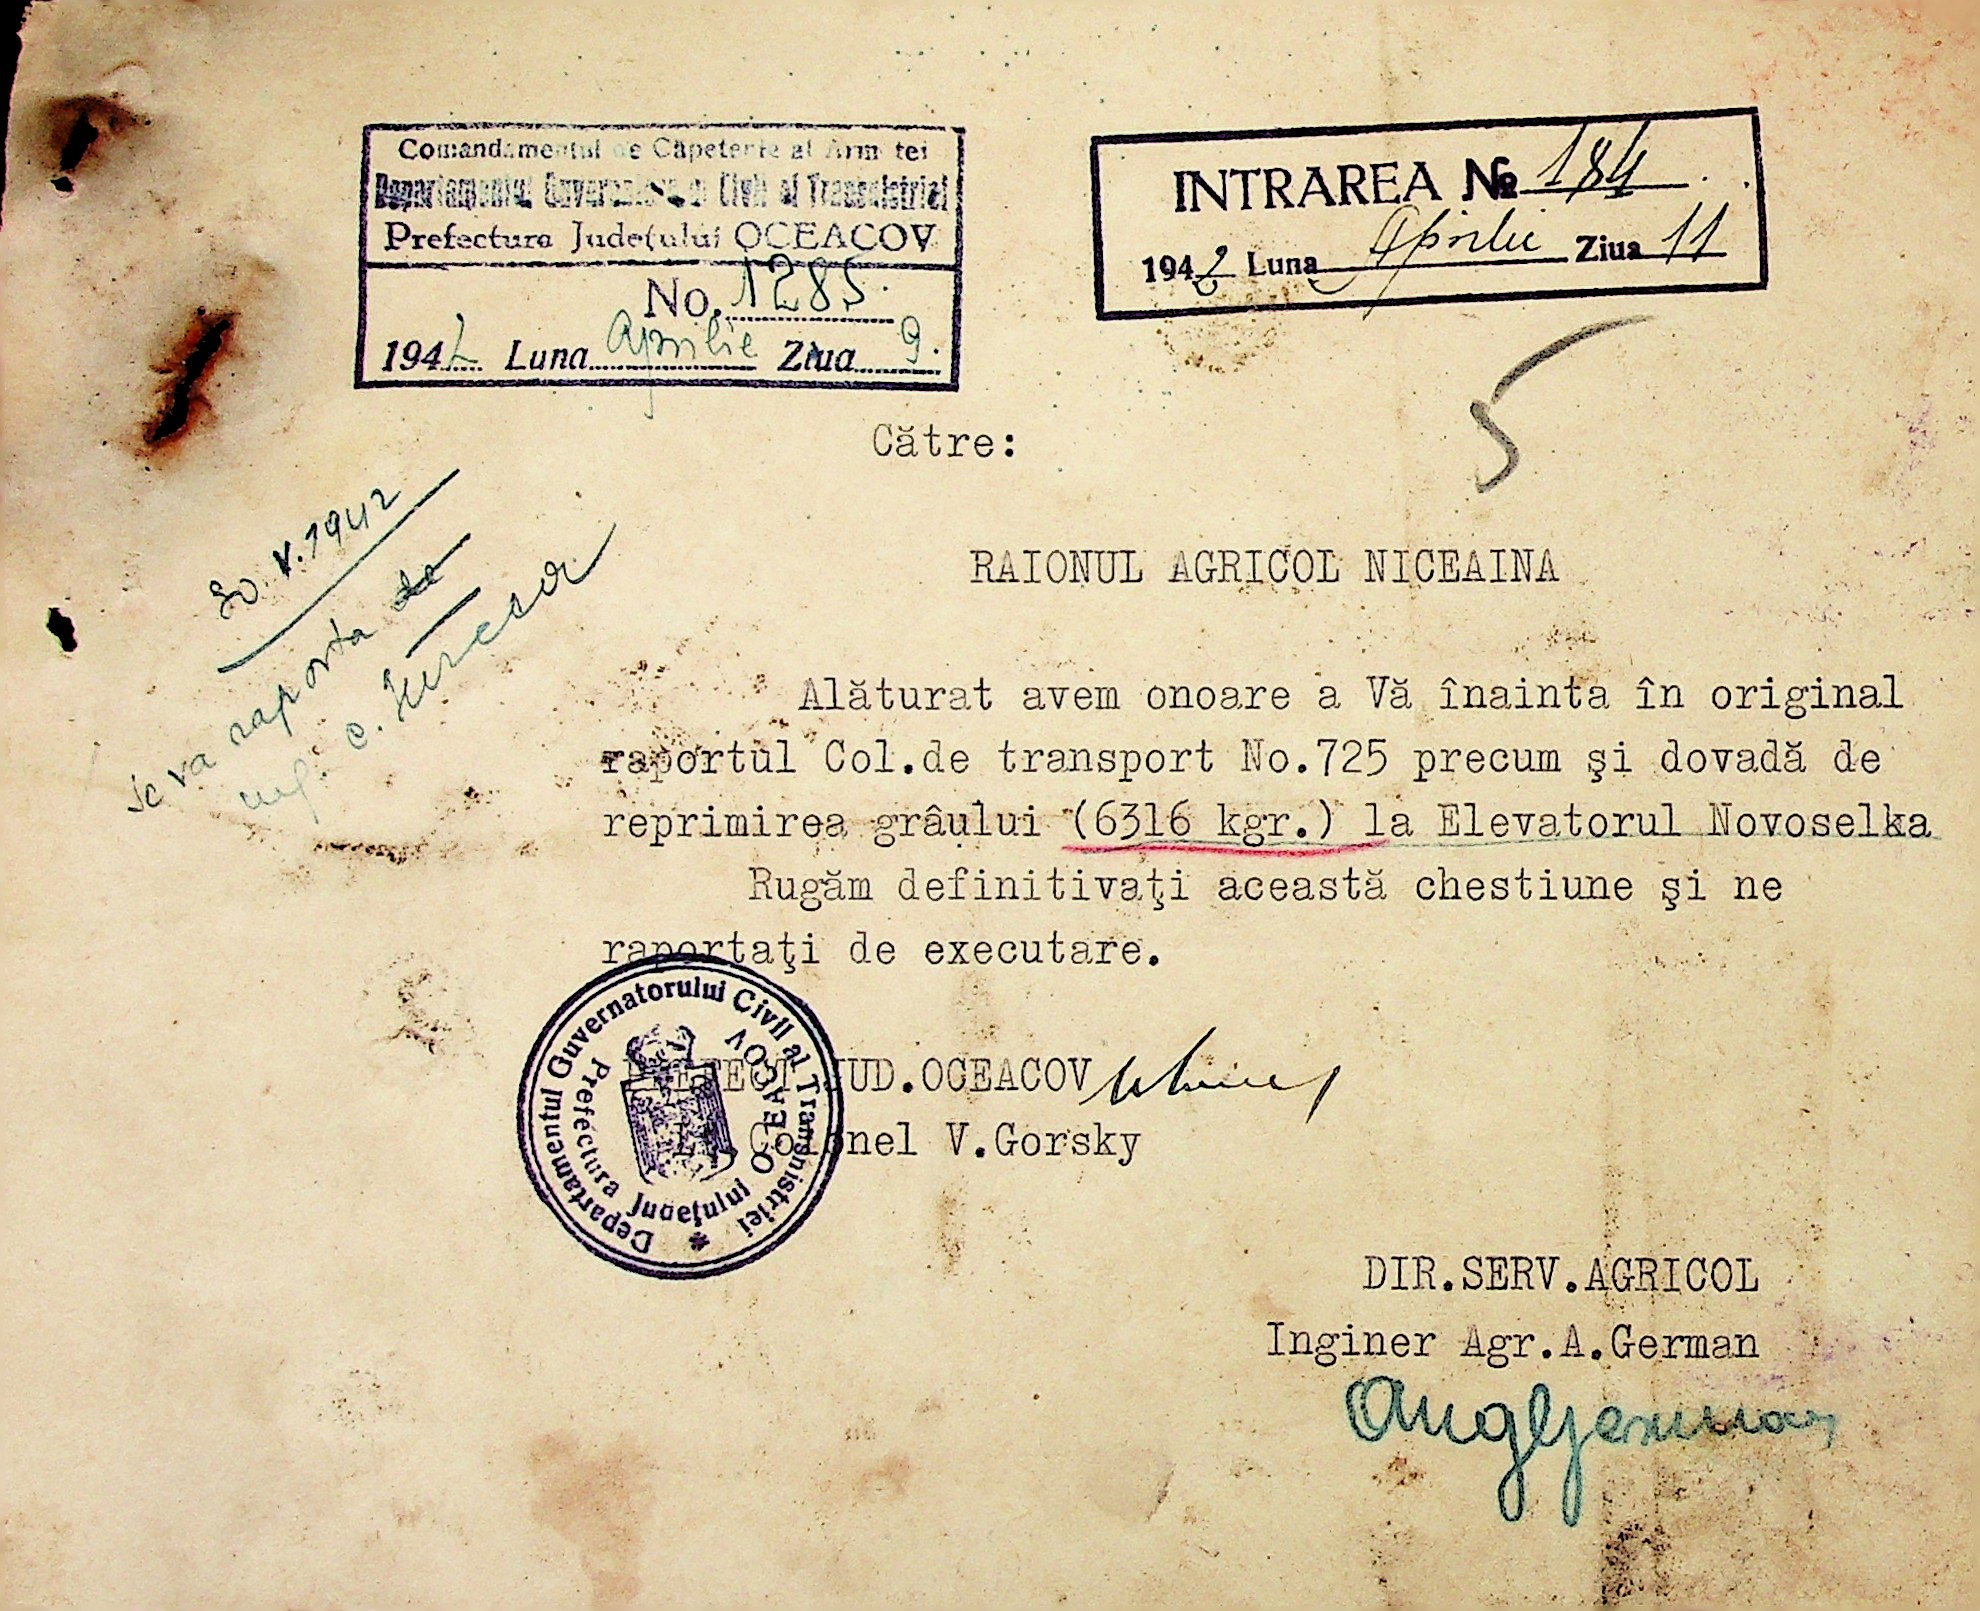 Comandamentul de Căpetenie al Armatei
Departamentul Guvernatorului Civil al Transnistriei
Prefectura Judeţului OCEACOV
No. 1285.
1942 Luna Aprilie Ziua 9.
INTRAREA № 184
1942 Luna Aprilie Ziua 11
5
Către:
V.1942
se va raporta de
RAIONUL AGRICOL NICEAINA
Alăturat avem onoare a Vă înainta în original
raportul Col.de transport No.725 precum şi dovadă de
reprimirea grâului (6316 kgr.) la Elevatorul Novoselka
Rugăm definitivaţi această chestiune şi ne
raportaţi de executare.
PREFECT JUD.OCEACOV
Lt Colonel V.Gorsky
Departamentul Guvernatorului Civil al Transnistriei
Prefectura Judeţului OCEACOV
DIR.SERV.AGRICOL
Inginer Agr.A.German